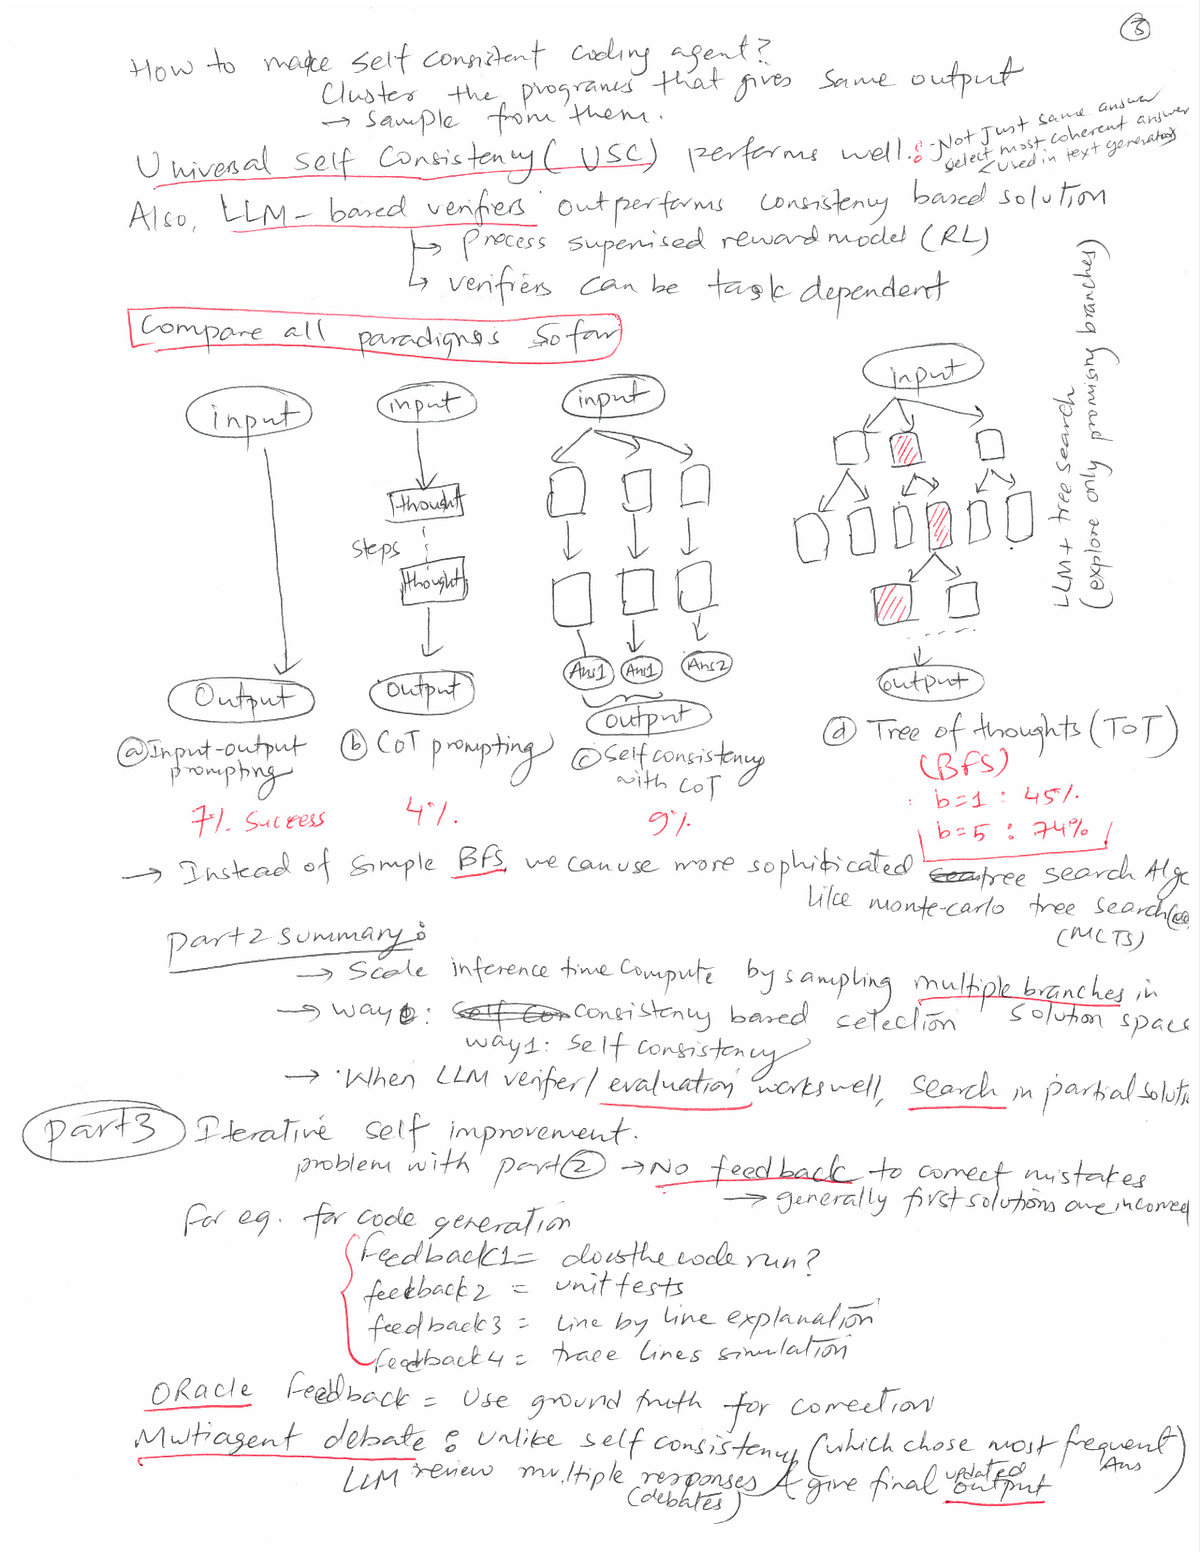 3
How to make self consistent coding agent?
Cluster the programs that gives same output
→ sample from them.
Universal Self Consistency (USC) performs well.: - Not just same answer
select most coherent answer
< used in text generation
Also, LLM-based verifiers outperforms consistency based solution
↳ process supervised reward model (RL)
↳ verifiers can be task dependent
Compare all paradigms so far
input
Output
input
thought
steps
thought
output
input
Ans1 Ans1 Ans2
output
input
output
LLM + tree search
(explore only promising branches)
ⓐ Input-output
prompting
7% success
ⓑ CoT prompting
4%
ⓒ Self consistency
with CoT
9%
ⓓ Tree of thoughts (ToT)
(BFS)
b=1 : 45%
b=5 : 74%
→ Instead of simple BFS, we can use more sophisticated tree search Algo
like monte-carlo tree search
(MCTS)
part 2 summary:
→ Scale inference time compute by sampling multiple branches in
solution space
→ way : consistency based selection
way1: self consistency
→ When LLM verifier/evaluation works well, search in partial soluti
part 3 Iterative self improvement.
problem with part ② → No feedback to correct mistakes
→ generally first solutions are incorrect
For eg. for code generation
feedback1 = does the code run?
feedback2 = unit tests
feedback3 = line by line explanation
feedback4 = trace lines simulation
ORacle feedback = use ground truth for correction
Multiagent debate : unlike self consistency (which chose most frequent Ans)
LLM review multiple responses & give final updated output
(debates)